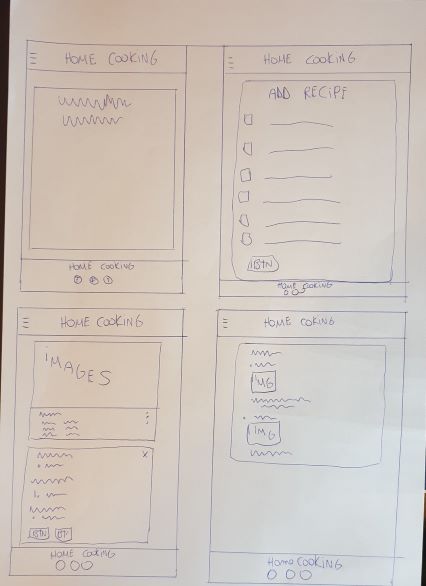 HOME COOKING
HOME COOKING
HOME COOKING
ADD RECIPE
BTN
HOME COOKING
HOME COOKING
IMAGES
X
BTN BTN
HOME COOKING
HOME COKING
IMG
IMG
HOME COOKING